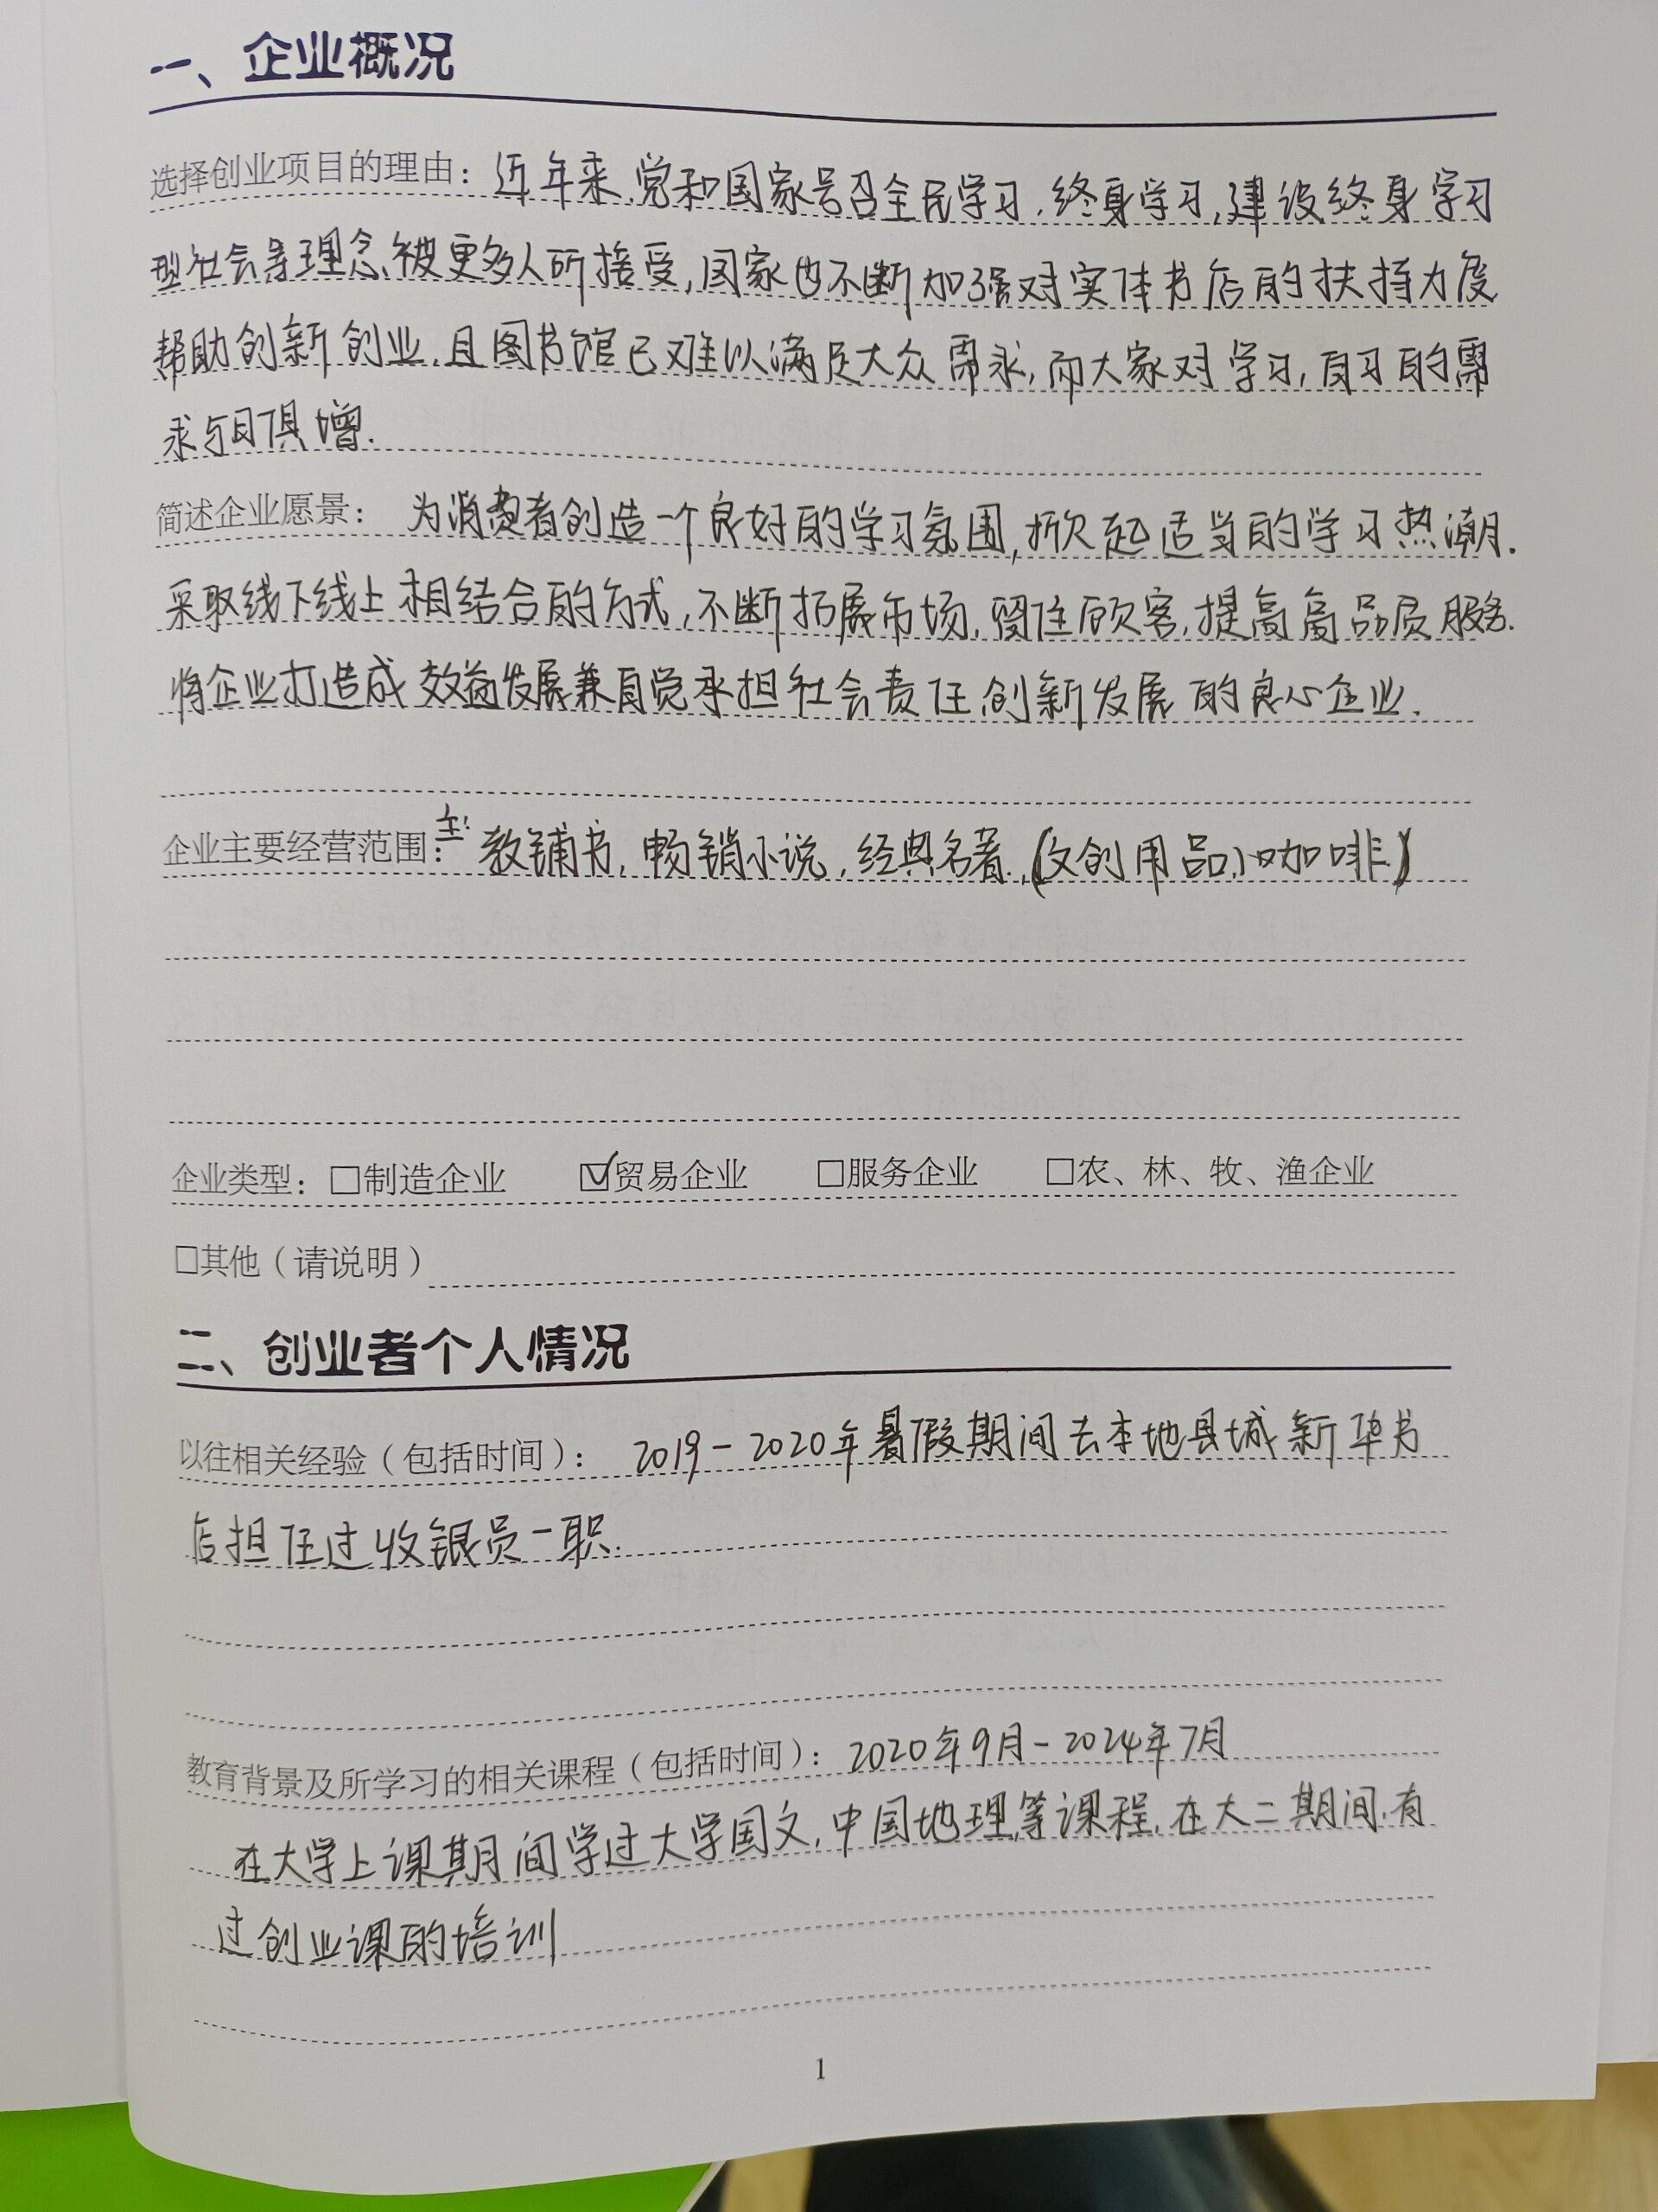 一、企业概况
选择创业项目的理由：近年来，党和国家号召全民学习，终身学习，建设终身学习
型社会等理念被更多人所接受，国家也不断加强对实体书店的扶持力度
帮助创新创业，且图书馆已难以满足大众需求，而大家对学习，自习的需
求与日俱增.
简述企业愿景：为消费者创造一个良好的学习氛围，掀起适当的学习热潮.
采取线下线上相结合的方式，不断拓展市场，留住顾客，提高高品质服务.
将企业打造成效益发展兼自觉承担社会责任创新发展的良心企业.
企业主要经营范围：主：教铺书，畅销小说，经典名著.（文创用品，咖啡）
企业类型：□制造企业 ☑贸易企业 □服务企业 □农、林、牧、渔企业
□其他（请说明）
二、创业者个人情况
以往相关经验（包括时间）：2019-2020年暑假期间去本地县城新华书
店担任过收银员一职.
教育背景及所学习的相关课程（包括时间）：2020年9月-2024年7月
在大学上课期间学过大学国文，中国地理，等课程，在大二期间，有
过创业课的培训
1